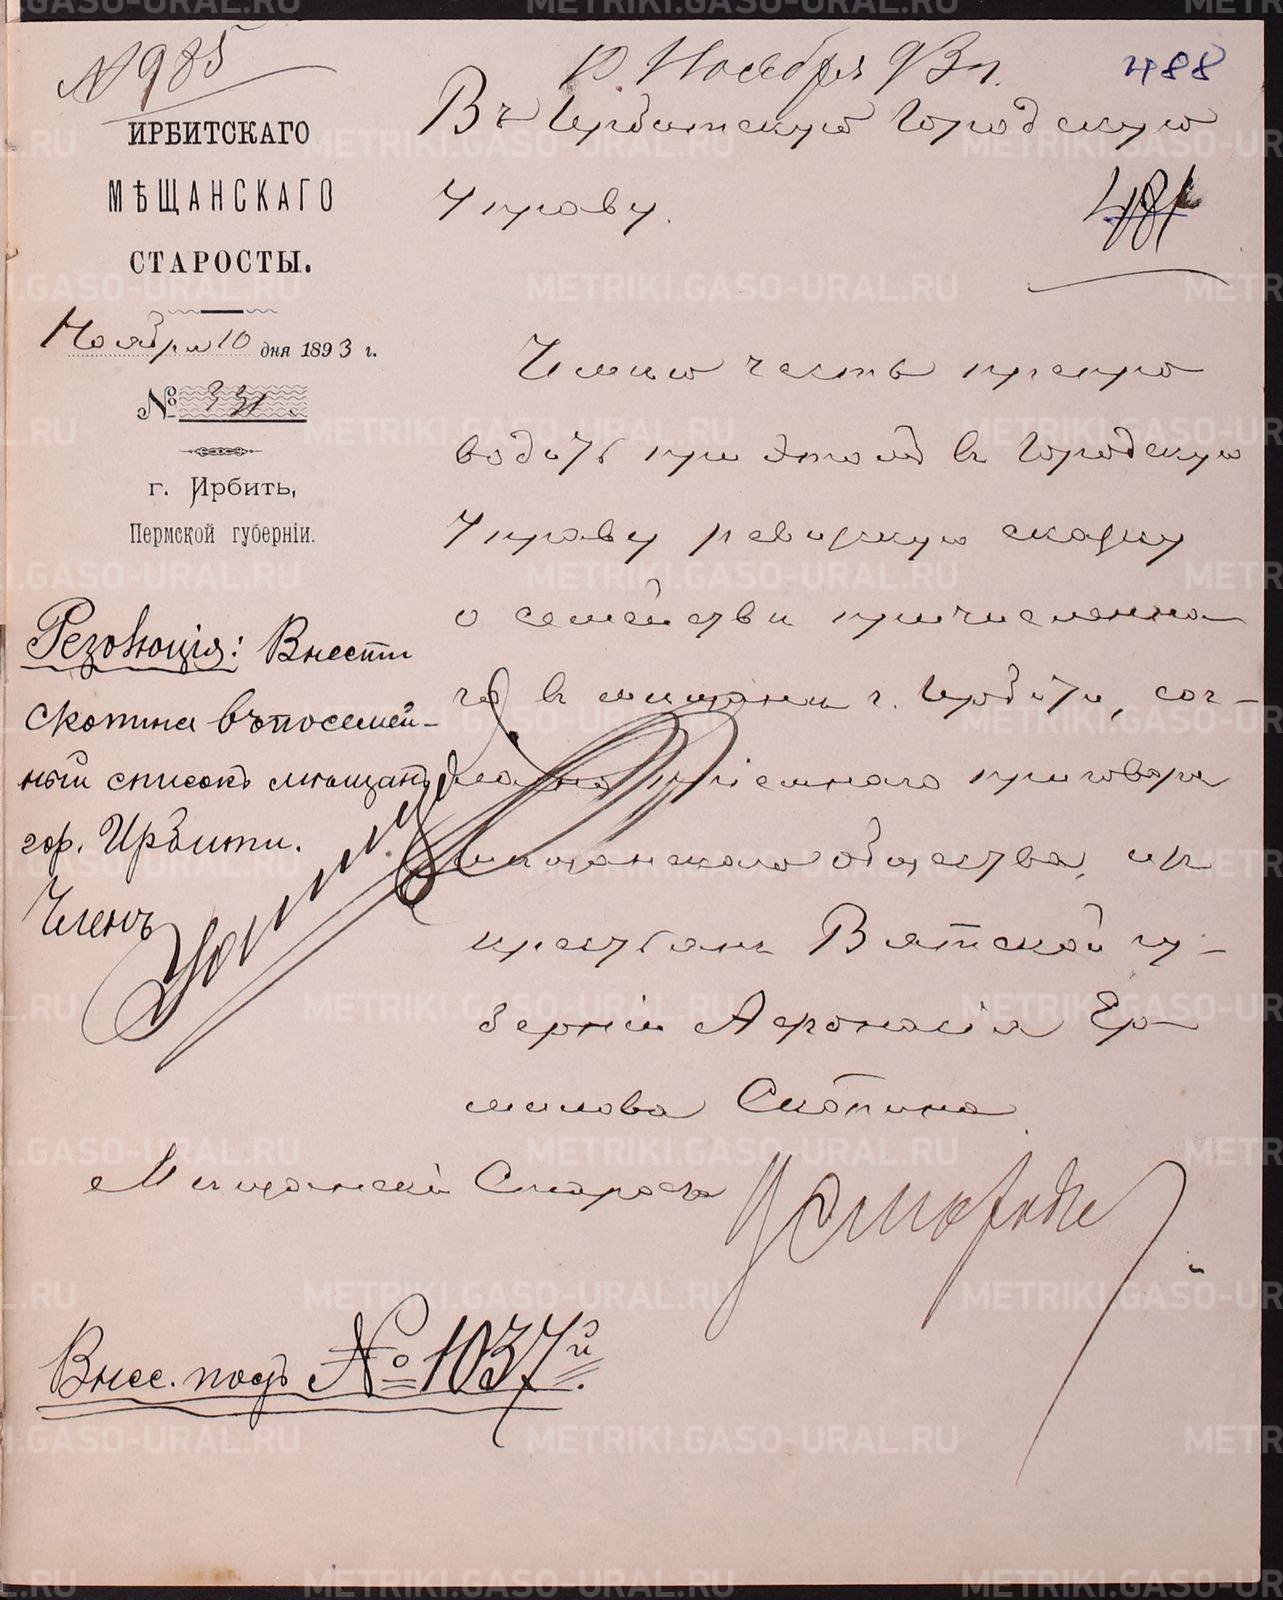 № 985
10 Ноября 93 г.
488
ИРБИТСКАГО
МѢЩАНСКАГО
СТАРОСТЫ.
Ноября 10 дня 1893 г.
№ 331.
г. Ирбить,
Пермской губерніи.
Въ Ирбитскую Городскую
Управу.
481
Имѣю честь препро
водить при этомъ въ Городскую
Управу ревизскую сказку
о семействѣ причисленна
го въ мѣщане г. Ирбити, сог-
ласно пріемнаго приговора
мѣщанскаго общества, изъ
крестьянъ Вятской гу-
берніи Афонасія Ер-
милова Скопина
Мѣщанскій Староста
Резолюція: Внести
Скопина въ посемей-
ный списокъ мѣщанъ
гор. Ирбити.
Членъ
Внес. подъ № 1037й.
METRIKI.GASO-URAL.RU